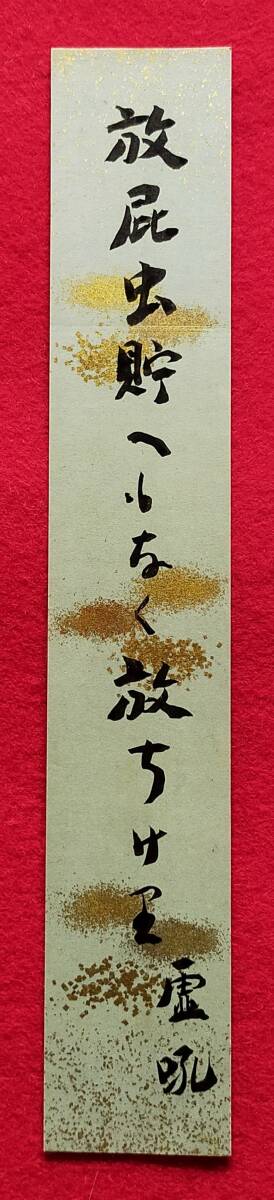 放屁虫貯へもなく放ちけり
虚吼